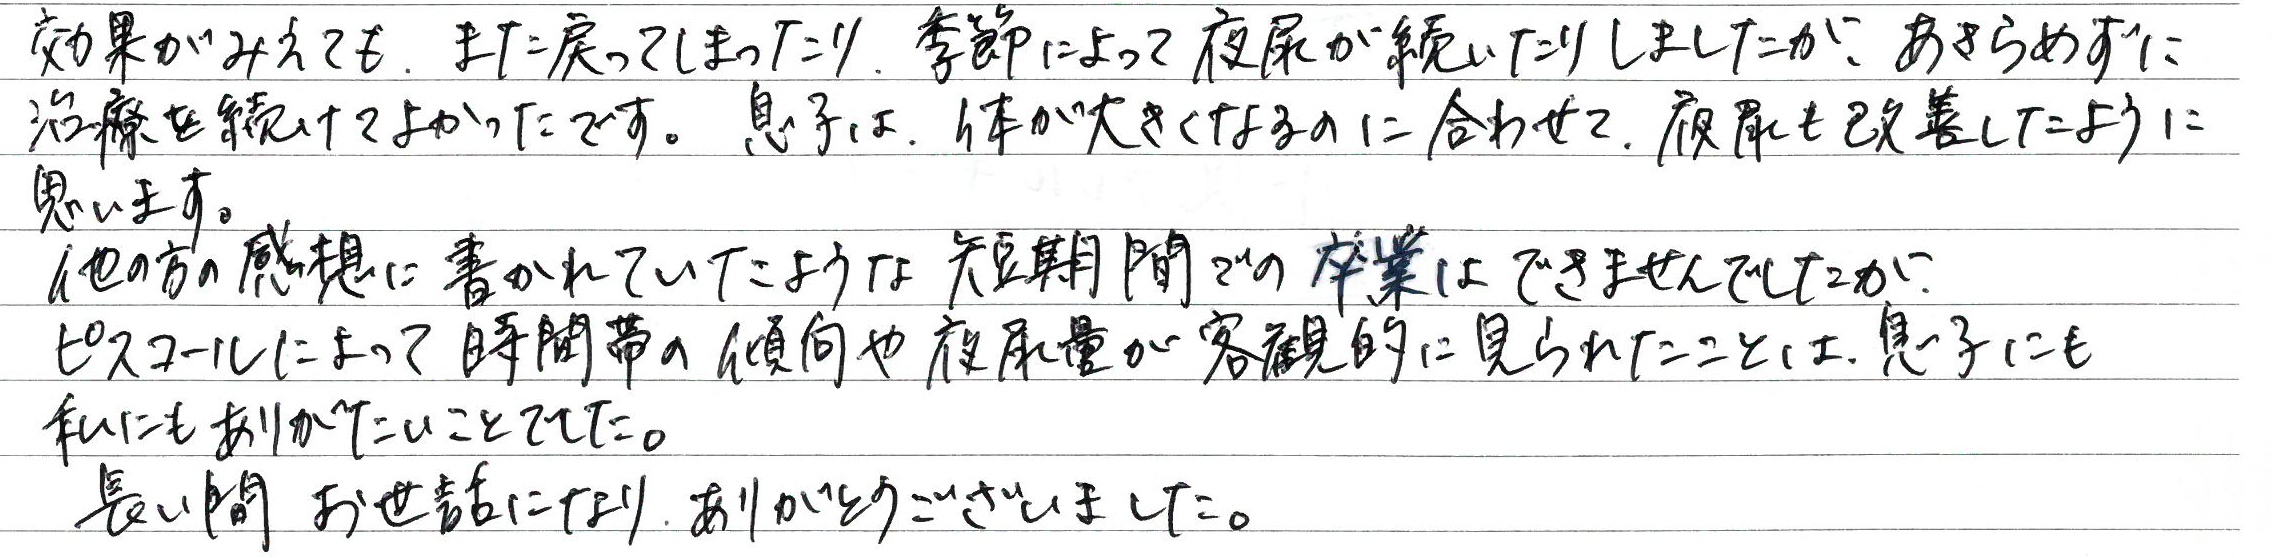 効果がみえても、また戻ってしまったり、季節によって夜尿が続いたりしましたが、あきらめずに
治療を続けてよかったです。息子は、体が大きくなるのに合わせて、夜尿も改善したように
思います。
他の方の感想に書かれていたような短期間での卒業はできませんでしたが、
ピスコールによって時間帯の傾向や夜尿量が客観的に見られたことは、息子にも
私にもありがたいことでした。
長い間お世話になり、ありがとうございました。